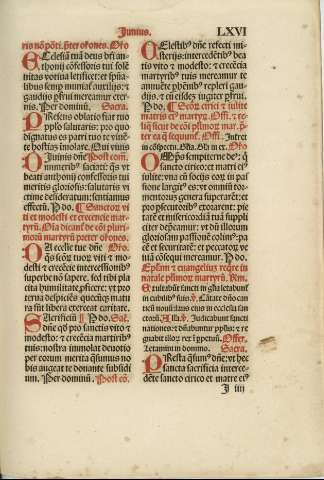 Junius.
LXVI
ris nō pōti. ꝓter orōnes. Orō
Ecclesiā tuā deus bti an-
thonij cōfessoris tui solē
nitas votiua letificet: et spūa
libus semp muniat auxilijs: et
gaudijs pfrui mereatur eter-
nis. Per dominū. Sacra.
Oblatio fiat tuo
pplo salutaris: pro quo
dignatus es patri tuo te viuē-
te hostiaʒ immolare. Qui viuis
Diuinis dn̄e Post com̄.
muneribus saciati: qs vt
beati anthonij confessoris tui
meritis gloriosis: salutaris vi
ctime
effectū. P do. Sanctorum vi
ti et modesti et crescencie mar-
tyrū. Oīa dicant̄ de cōi pluri-
morū martyrū preter orōnes.
Da ecclesie tue dn̄e Orō.
qs scōr̄ tuor̄ viti et mo-
desti et crescēcie intercessionibus
superbe nō sapere: sed tibi pla
cita humilitate pficere: vt pro
terna despiciēs quecūqʒ matu
ra sūt libera exerceat caritate.
Sacrificiū P do. Sac.
dn̄e qd pro sanctis vito et
modesto: et crescēcia martyrib
tuis: nostra immolat deuotio
per eorum merita qsumus no
bis augeat te donante subsidi
um. Per dominū. Post cō.
Celestibus dn̄e refecti mi
sterijs: intercedētib bea
tis vito et modesto: et crescēcia
martyrib tuis mereamur te
annuēte phēnib repleri gau-
dijs. et cū eisdez iugiter pfrui.
P do. Scōr̄ cirici et iulite
matris ei martyrum. Offi. et re
liq sicut de cōi plimor̄ mar. p̄-
ter ea q sequunt̄. Offi. Intret
in cōspectu. Glā. Orō.
Omps sempiterne de: q
sancto cirico: et matri ei
iulite: vna cū socijs eor̄ in pas
sione largit es: vt omniū tor-
mentorum genera superarēt: et
pro psecutorib exorarēt: pie
tatē et misericordiā tuā suppli
citer depcamur: vt dū illorum
gloriosam passionē colim: pa
cē et securitatē: et peccator̄ ve
niā cōsequi mereamur. P do.
Eplam et euangelium reqre in
natale plimorum martyrum.
Exultabūt sancti in gloria letabunt̄
in cubilib suis. v. Cātate dn̄o can
ticū nouū: laus eius in ecclesia san
ctorū. Alla. v. Judicabunt sancti
nationes: et dn̄abuntur pplis: et re
gnabit illor̄ rex ippetuū. Offer.
Letamini in domino. Sacra.
Presta qsum dn̄e: vt hec
sancta sacrificia interce-
dēte sancto cirico et matre ei
I iiij